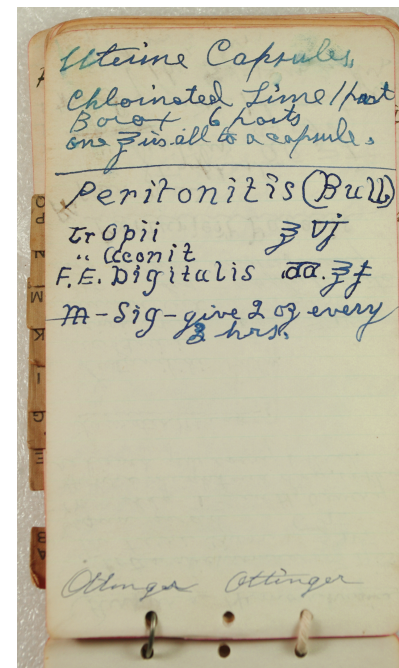 Uterine Capsules,
Chloinated Lime 1 part
Borox 6 parts
one ʒ is all to a capsule.
Peritonitis (Bull)
tr Opii ℥ vj
" Aconit
F.E. Digitalis aa. ℥ j
M - Sig - give 2 oz every
hrs.
Ottinger Ottinger
O
P
N
M
K
I